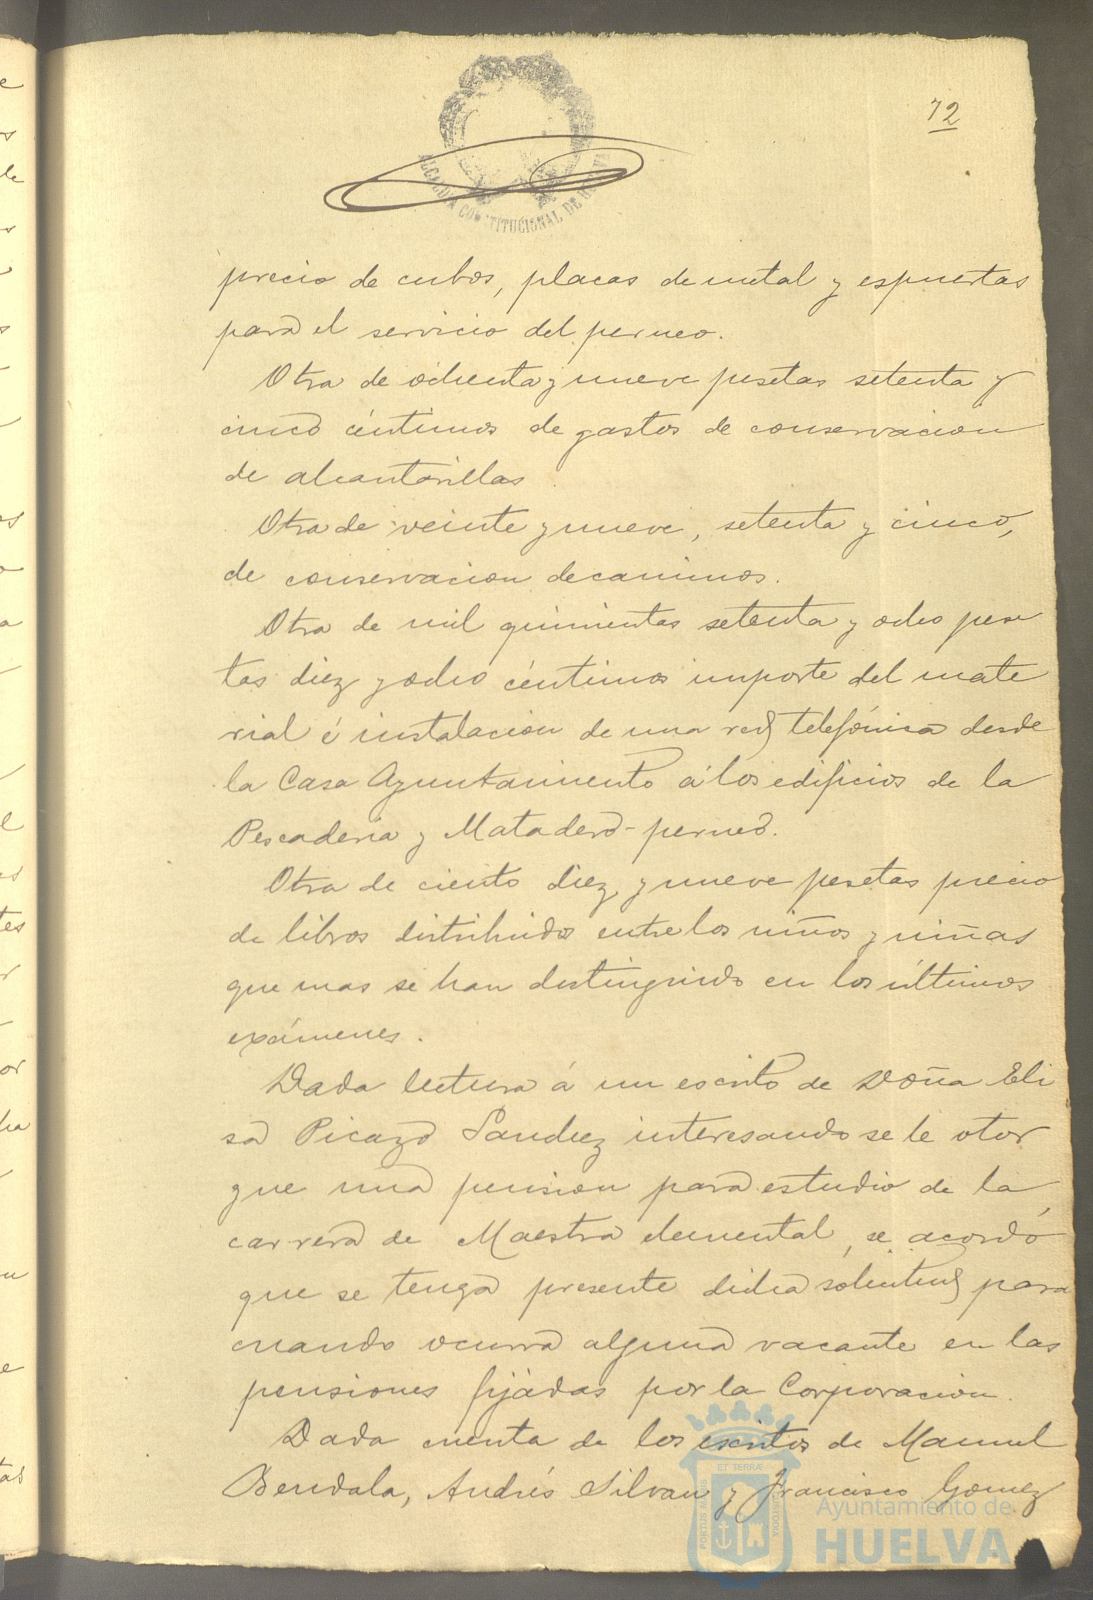 72
ALCALDIA CONSTITUCIONAL DE HUELVA
precio de cubos, placas de metal y espuertas
para el servicio del perneo.
Otra de ochenta y nueve pesetas setenta y
cinco céntimos de gastos de conservacion
de alcantarillas
Otra de veinte y nueve, setenta y cinco,
de conservacion de caminos.
Otra de mil quinientas setenta y ocho pese
tas diez y ocho céntimos importe del mate
rial é instalacion de una red telefónica desde
la Casa Ayuntamiento á los edificios de la
Pescaderia y Matadero-perneo.
Otra de ciento diez y nueve pesetas precio
de libros distribuidos entre los niños y niñas
que mas se han distinguido en los últimos
exámenes.
Dada lectura á un escrito de Doña Eli
sa Picazo Sanchez interesando se le otor
gue una pension para estudio de la
carrera de Maestra elemental, se acordó
que se tenga presente dicha solicitud para
cuando ocurra alguna vacante en las
pensiones fijadas por la Corporacion.
Dada cuenta de los escritos de Manuel
Bendala, Andrés Silvan y Francisco Gomez
Ayuntamiento de
HUELVA